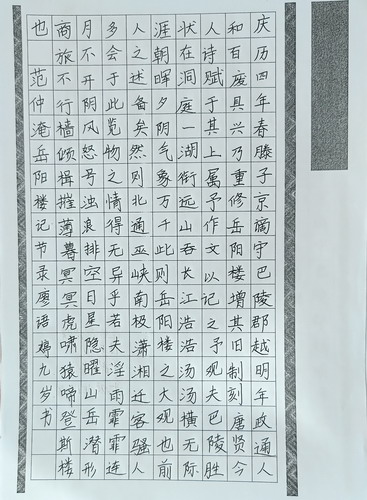 庆历四年春滕子京谪守巴陵郡越明年政通人
和百废具兴乃重修岳阳楼增其旧制刻唐贤今
人诗赋于其上属予作文以记之予观夫巴陵胜
状在洞庭一湖衔远山吞长江浩浩汤汤横无际
涯朝晖夕阴气象万千此则岳阳楼之大观也前
人之述备矣然则北通巫峡南极潇湘迁客骚人
多会于此览物之情得无异乎若夫淫雨霏霏连
月不开阴风怒号浊浪排空日星隐曜山岳潜形
商旅不行樯倾楫摧薄暮冥冥虎啸猿啼登斯楼
也 范仲淹岳阳楼记节录廖语婷九岁书